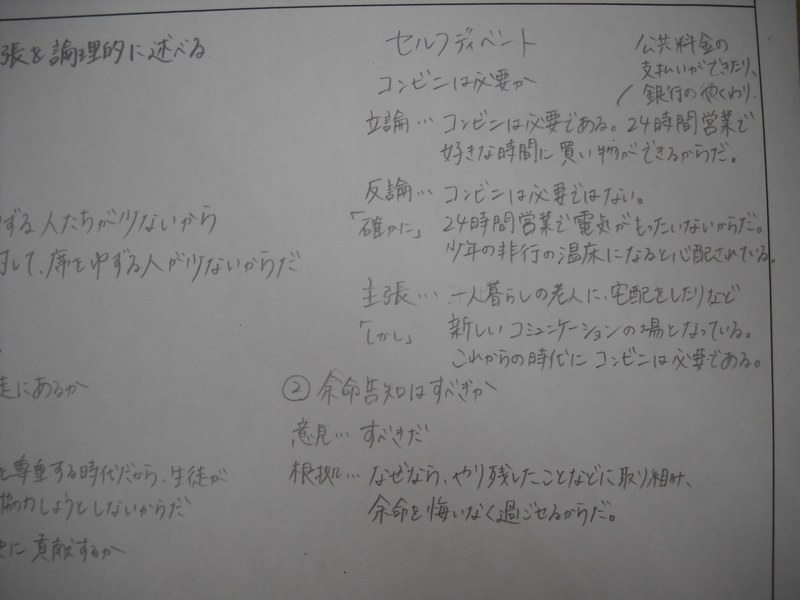 張を論理的に述べる
セルフディベート
コンビニは必要か
公共料金の
支払いができたり、
銀行のやくわり
立論… コンビニは必要である。24時間営業で
好きな時間に買い物ができるからだ。
反論… コンビニは必要ではない。
「確かに」 24時間営業で電気がもったいないからだ。
少年の非行の温床になると心配されている。
主張… 一人暮らしの老人に、宅配をしたりなど
「しかし」 新しいコミュニケーションの場となっている。
これからの時代にコンビニは必要である。
②余命告知はすべきか
意見… すべきだ
根拠… なぜなら、やり残したことなどに取り組み、
余命を悔いなく過ごせるからだ。
ずる人たちが少ないから
して、席をゆずる人が少ないからだ
にあるか
を尊重する時代だから、生徒が
協力しようとしないからだ
に貢献するか